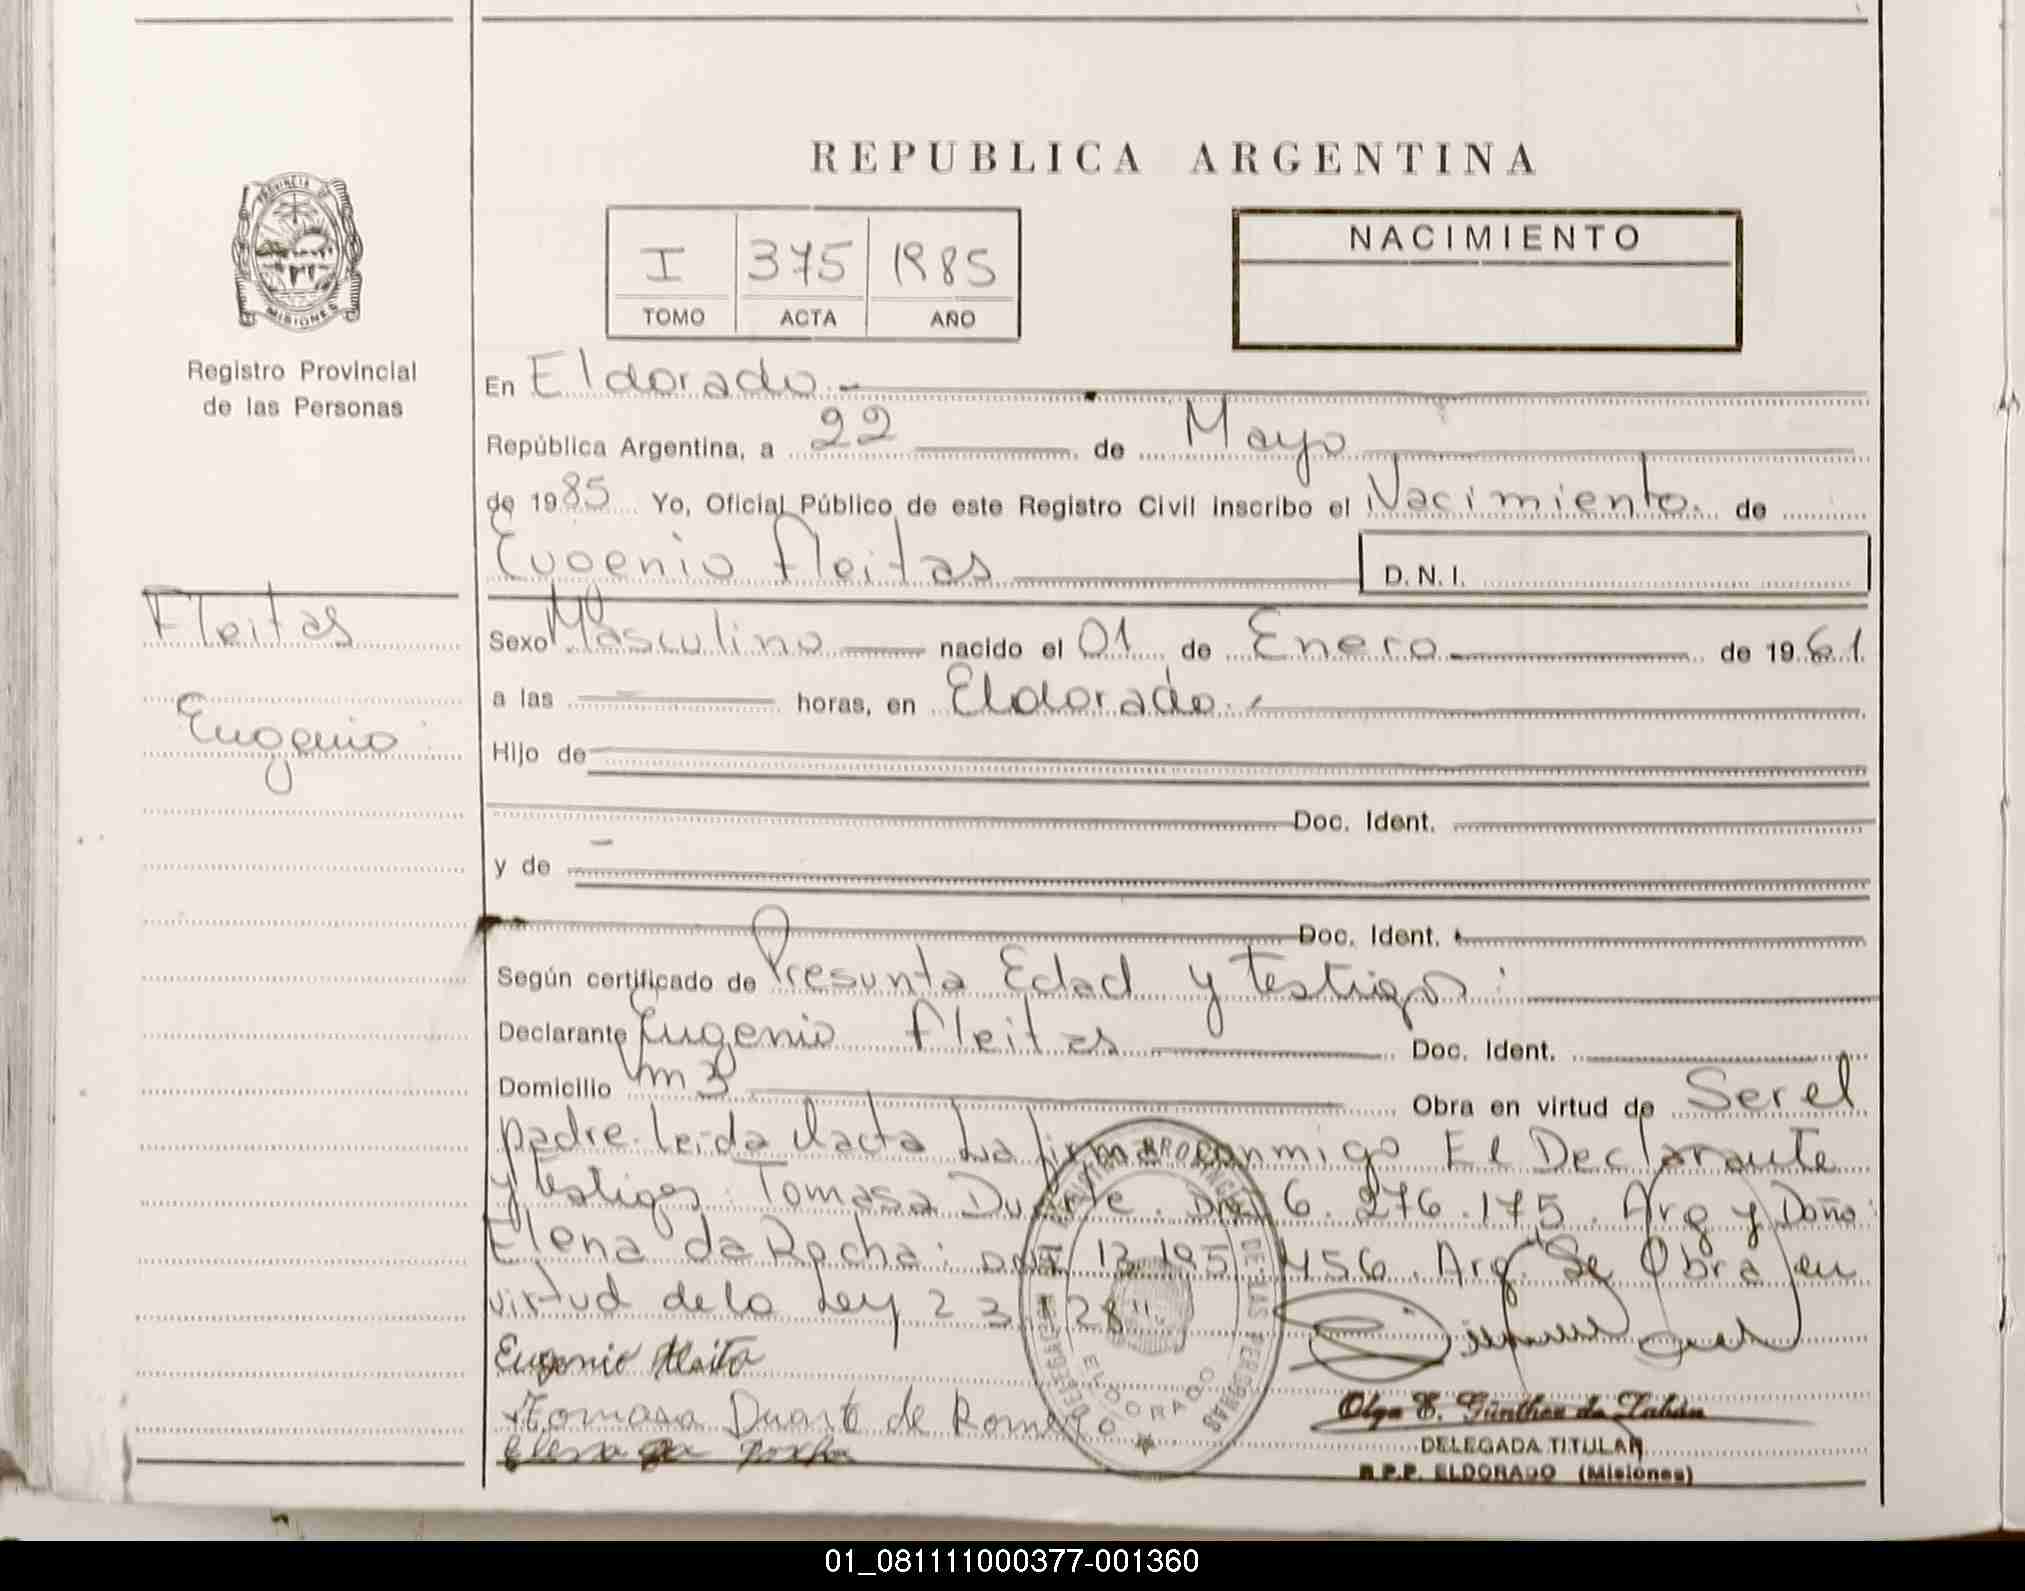 REPUBLICA ARGENTINA
PROVINCIA DE
MISIONES
Registro Provincial
de las Personas
I 375 1985
TOMO ACTA AÑO
NACIMIENTO
En Eldorado.-
República Argentina, a 22 de Mayo
de 1985 Yo, Oficial Público de este Registro Civil inscribo el Nacimiento. de
Eugenio Fleitas D.N.I.
Fleitas
Eugenio
Sexo Masculino nacido el 01 de Enero de 1961
a las horas, en Eldorado.
Hijo de
Doc. Ident.
y de
Doc. Ident.
Según certificado de Presunta Edad y testigos:
Declarante Eugenio Fleitas Doc. Ident.
Domicilio Km 3 Obra en virtud de Ser el
padre. leída el acta La firma conmigo El Declarante
y testigos: Tomasa Duarte. 6.276.175. Arg y Doña:
Elena da Rocha: DNI 13.195.456. Arg. Se Obra en
virtud de la Ley 23.128"
Eugenio Fleita
Tomasa Duarte de Romero
Elena da rocha
DE LAS PERSONAS
ELDORADO
Olga E. Günther de
DELEGADA TITULAR
R.P.P. ELDORADO (Misiones)
01_081111000377-001360